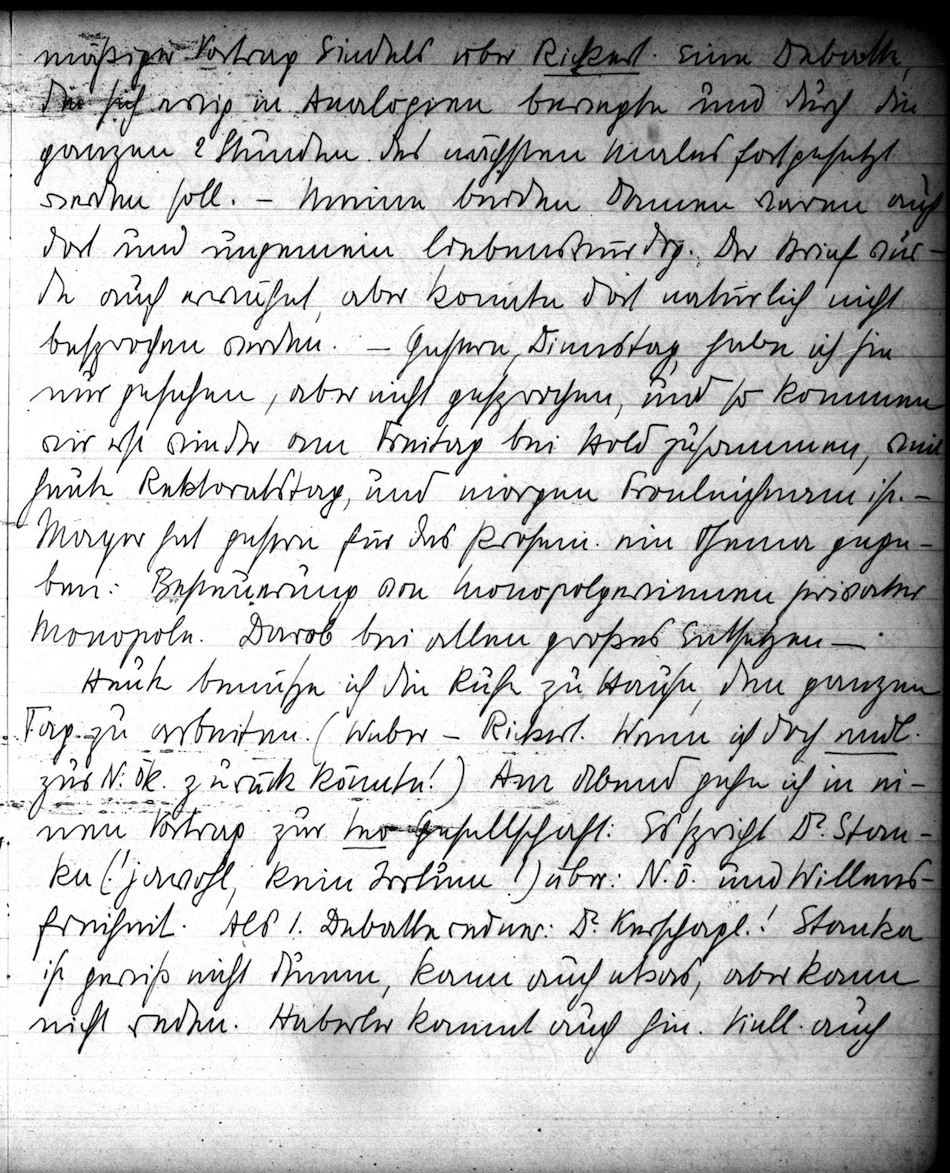 mäßiger Vortrag Sindels über Rickert. Eine Debatte,
die sich ewig in Analogien bewegte und durch die
ganzen 2 Stunden des nächsten Males fortgesetzt
werden soll. – Meine beiden Damen waren auch
dort und ungemein liebenswürdig. Der Brief wur-
de auch erwähnt, aber konnte dort natürlich nicht
besprochen werden. – Gestern, Dienstag, habe ich sie
nur gesehen, aber nicht gesprochen, und so kommen
wir erst wieder am Freitag bei Hold zusammen, weil
heute Rektoratstag, und morgen Fronleichnam ist. –
Mayer hat gestern für das Prosem. ein Thema gege-
ben: Besteuerung von Monopolgewinnen privater
Monopole. Darob bei allen großes Entsetzen –
Heute benutze ich die Ruhe zu Hause, den ganzen
Tag zu arbeiten. (Weber – Rickert. Wenn ich doch endl.
zur N. Ök. zurück könnte!) Am Abend gehe ich in ei-
nen Vortrag zur Leo Gesellschaft: Es spricht Dr. Stan-
ka (! jawohl, kein Irrtum!) über: N. Ö. und Willens-
freiheit. Als 1. Debatteredner: Dr. Kerschagl.! Stanka
ist gewiß nicht dumm, kann auch etwas, aber kann
nicht reden. Haberler kommt auch hin. Viell. auch